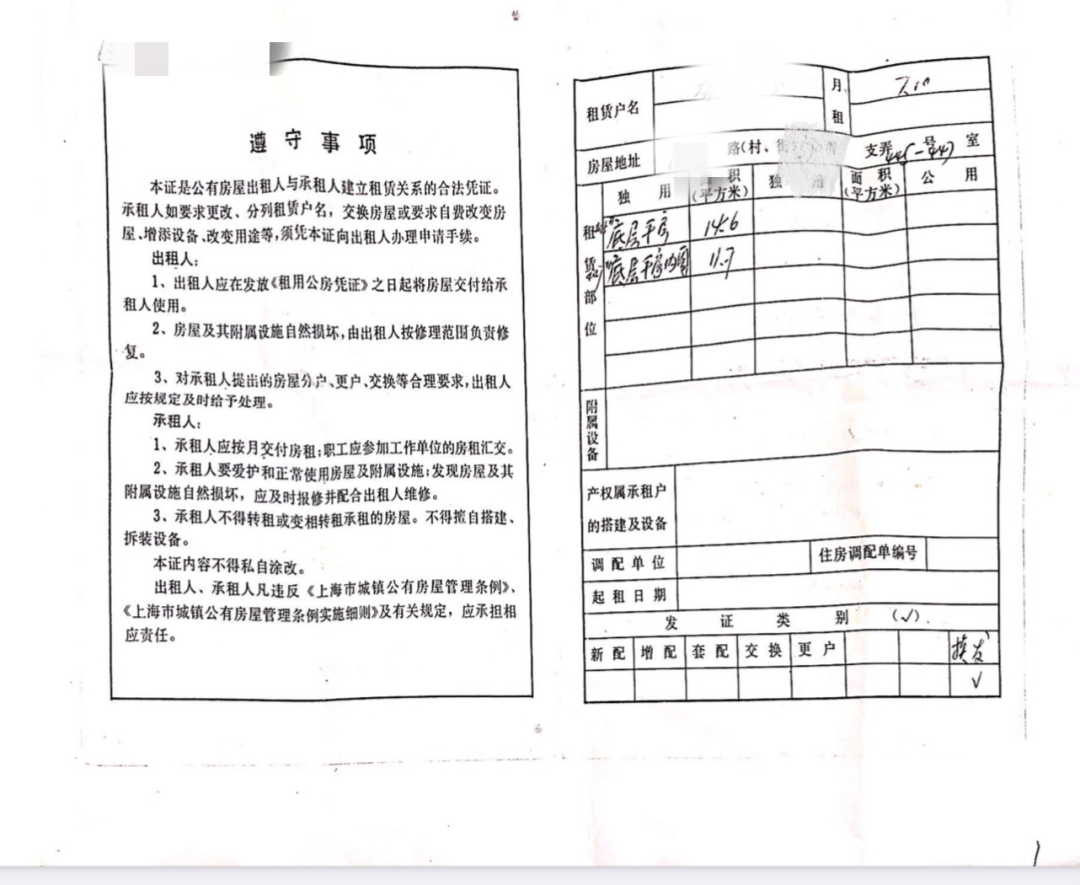 遵守事项
本证是公有房屋出租人与承租人建立租赁关系的合法凭证。
承租人如要求更改、分列租赁户名，交换房屋或要求自费改变房
屋、增添设备、改变用途等，须凭本证向出租人办理申请手续。
出租人：
1、出租人应在发放《租用公房凭证》之日起将房屋交付给承
租人使用。
2、房屋及其附属设施自然损坏，由出租人按修理范围负责修
复。
3、对承租人提出的房屋分户、更户、交换等合理要求，出租人
应按规定及时给予处理。
承租人：
1、承租人应按月交付房租；职工应参加工作单位的房租汇交。
2、承租人要爱护和正常使用房屋及附属设施；发现房屋及其
附属设施自然损坏，应及时报修并配合出租人维修。
3、承租人不得转租或变相转租承租的房屋。不得擅自搭建、
拆装设备。
本证内容不得私自涂改。
出租人、承租人凡违反《上海市城镇公有房屋管理条例》、
《上海市城镇公有房屋管理条例实施细则》及有关规定，应承担相
应责任。
租赁户名 月租
房屋地址 路(村、街) 支弄 号 室
租赁部位 独用 面积(平方米) 独用 面积(平方米) 公用
底层平房 14.6
底层平房内阁 11.7
附属设备
产权属承租户
的搭建及设备
调配单位 住房调配单编号
起租日期
发证类别(√)
新配 增配 套配 交换 更户 换发
√